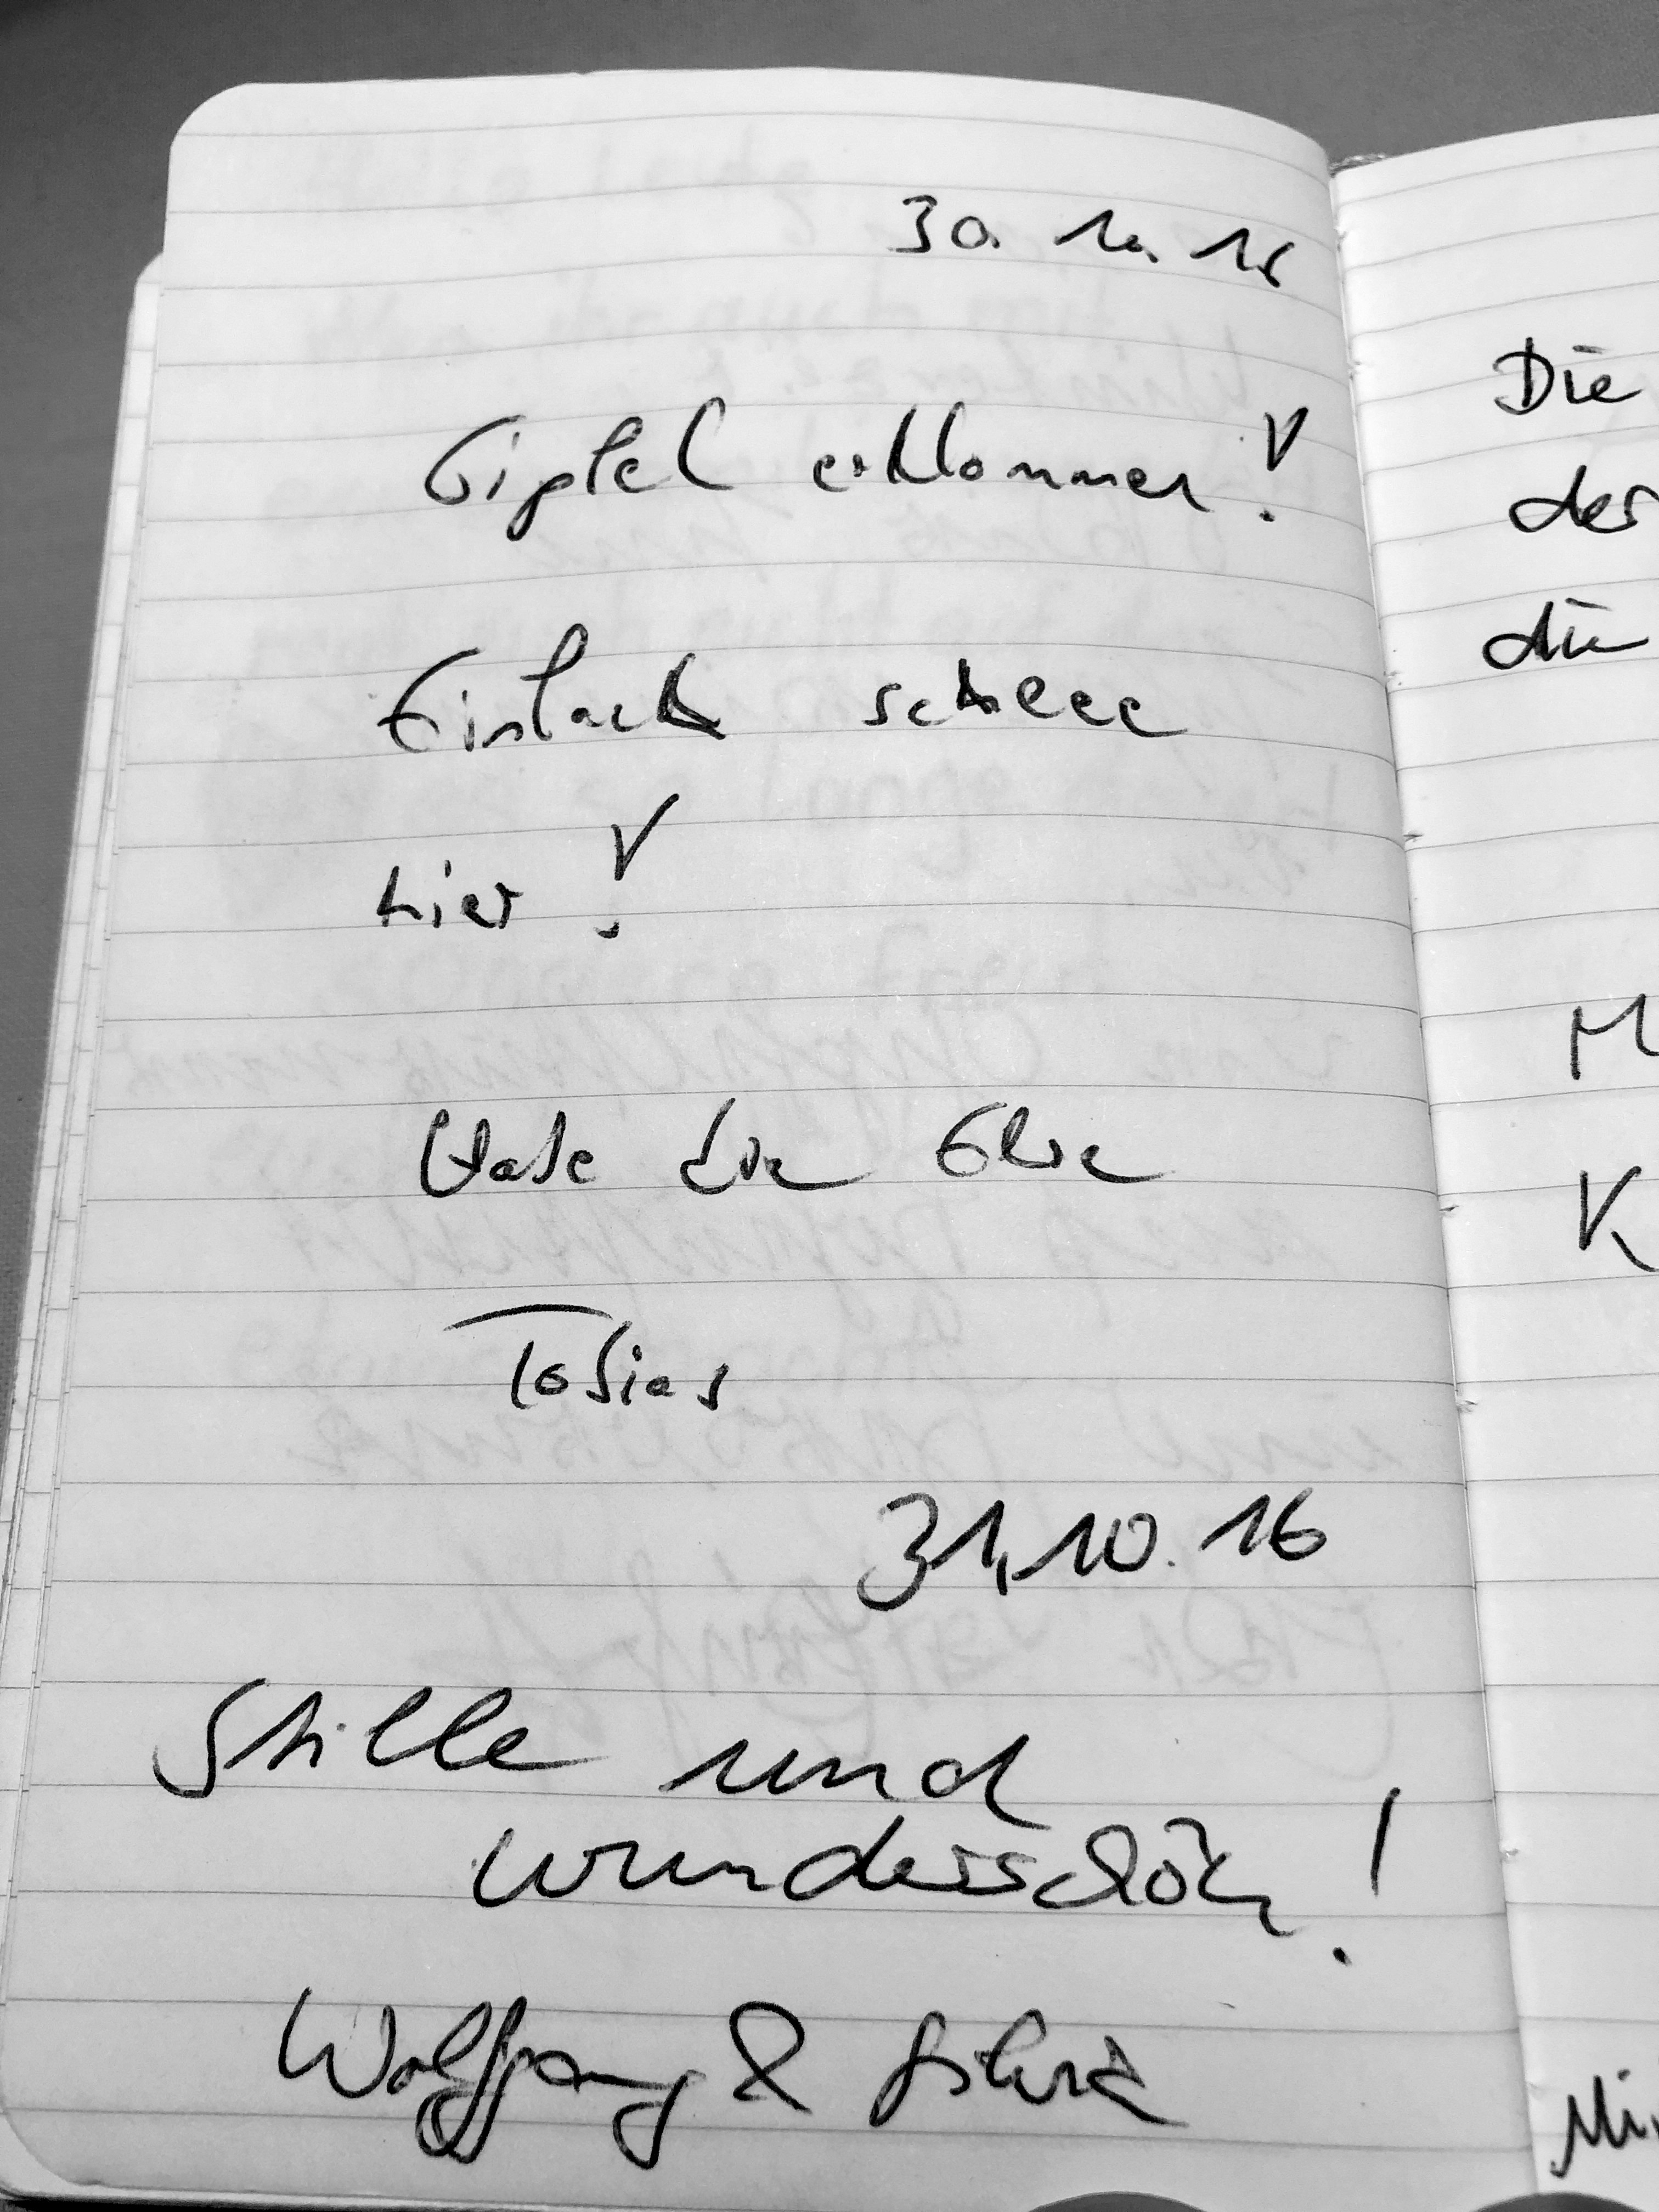 30. 10. 16
Gipfel erklommen!
Einfach scheee
hier!
Tobias
31.10.16
Stille und
wunderschön!
Wolfgang & Silvia
Die
der
die
M
K
Mi